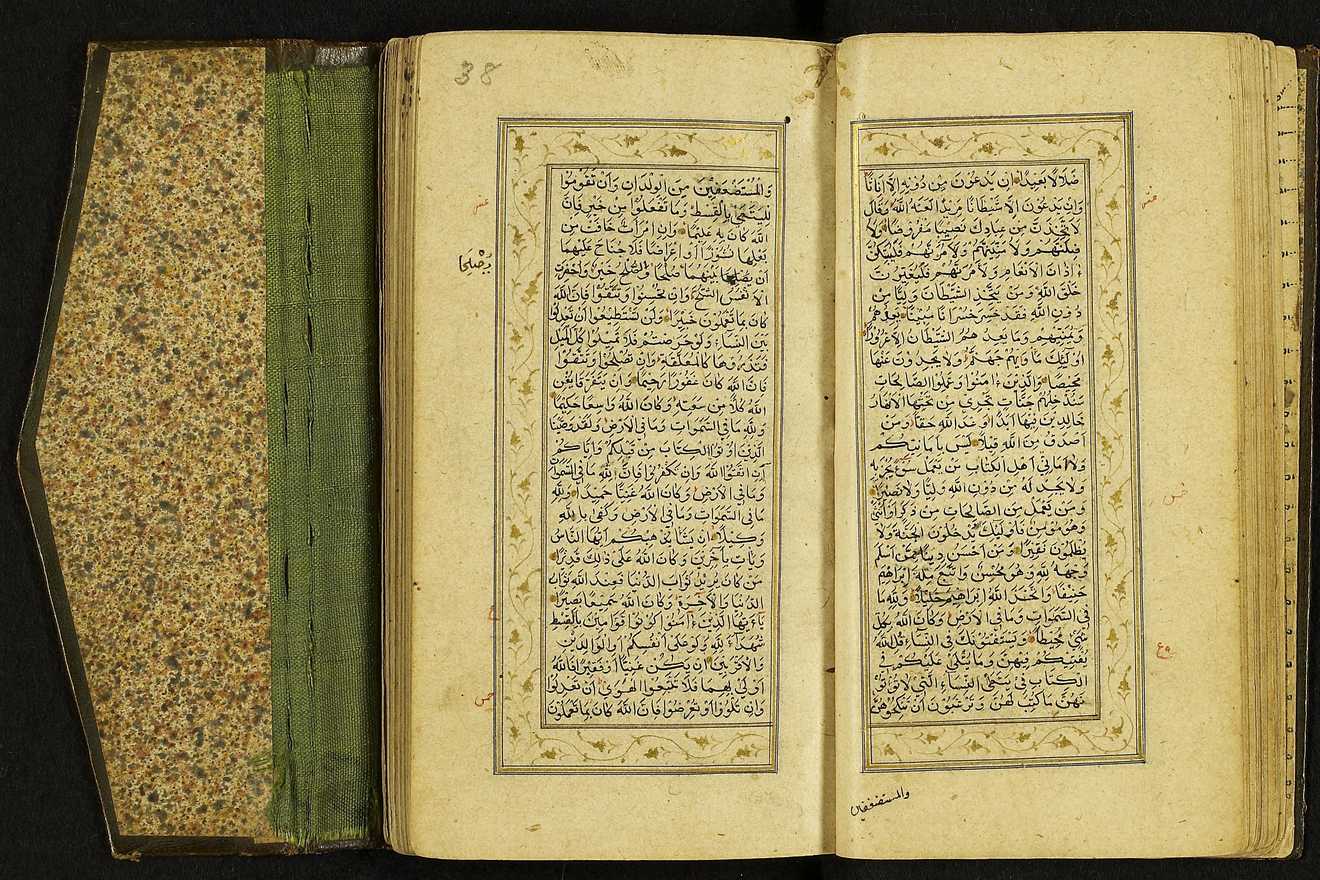 38
ضَلَالًا بَعِيدًا اِنْ يَدْعُونَ مِنْ دُونِهِ اِلَّا اِنَاثًا
وَاِنْ يَدْعُونَ اِلَّا شَيْطَانًا مَرِيدًا لَعَنَهُ اللَّهُ وَقَالَ
لَاَتَّخِذَنَّ مِنْ عِبَادِكَ نَصِيبًا مَفْرُوضًا وَلَاُ
ضِلَّنَّهُمْ وَلَاُمَنِّيَنَّهُمْ وَلَاٰمُرَنَّهُمْ فَلَيُبَتِّكُنَّ
ءَاذَانَ الْاَنْعَامِ وَلَاٰمُرَنَّهُمْ فَلَيُغَيِّرُنَّ
خَلْقَ اللَّهِ وَمَنْ يَتَّخِذِ الشَّيْطَانَ وَلِيًّا مِنْ
دُونِ اللَّهِ فَقَدْ خَسِرَ خُسْرَانًا مُبِينًا يَعِدُهُمْ
وَيُمَنِّيهِمْ وَمَا يَعِدُهُمُ الشَّيْطَانُ اِلَّا غُرُورًا
اُولٰئِكَ مَأْوٰيهُمْ جَهَنَّمُ وَلَا يَجِدُونَ عَنْهَا
مَحِيصًا وَالَّذِينَ ءَامَنُوا وَعَمِلُوا الصَّالِحَاتِ
سَنُدْخِلُهُمْ جَنَّاتٍ تَجْرِي مِنْ تَحْتِهَا الْاَنْهَارُ
خَالِدِينَ فِيهَا اَبَدًا وَعْدَ اللَّهِ حَقًّا وَمَنْ
اَصْدَقُ مِنَ اللَّهِ قِيلًا لَيْسَ بِاَمَانِيِّكُمْ
وَلَا اَمَانِيِّ اَهْلِ الْكِتَابِ مَنْ يَعْمَلْ سُوءًا يُجْزَ بِهِ
وَلَا يَجِدْ لَهُ مِنْ دُونِ اللَّهِ وَلِيًّا وَلَا نَصِيرًا
وَمَنْ يَعْمَلْ مِنَ الصَّالِحَاتِ مِنْ ذَكَرٍ اَوْ اُنْثٰى
وَهُوَ مُؤْمِنٌ فَاُولٰئِكَ يَدْخُلُونَ الْجَنَّةَ وَلَا
يُظْلَمُونَ نَقِيرًا وَمَنْ اَحْسَنُ دِينًا مِمَّنْ اَسْلَمَ
وَجْهَهُ لِلَّهِ وَهُوَ مُحْسِنٌ وَاتَّبَعَ مِلَّةَ اِبْرَاهِيمَ
حَنِيفًا وَاتَّخَذَ اللَّهُ اِبْرَاهِيمَ خَلِيلًا وَلِلَّهِ مَا
فِي السَّمٰوَاتِ وَمَا فِي الْاَرْضِ وَكَانَ اللَّهُ بِكُلِّ
شَيْءٍ مُحِيطًا وَيَسْتَفْتُونَكَ فِي النِّسَاءِ قُلِ اللَّهُ
يُفْتِيكُمْ فِيهِنَّ وَمَا يُتْلٰى عَلَيْكُمْ فِي
الْكِتَابِ فِي يَتَامَى النِّسَاءِ الّٰتِي لَا تُؤْتُو
نَهُنَّ مَا كُتِبَ لَهُنَّ وَتَرْغَبُونَ اَنْ تَنْكِحُوهُنَّ
والمستضعفين
وَالْمُسْتَضْعَفِينَ مِنَ الْوِلْدَانِ وَاَنْ تَقُومُوا
لِلْيَتَامٰى بِالْقِسْطِ وَمَا تَفْعَلُوا مِنْ خَيْرٍ فَاِنَّ
اللَّهَ كَانَ بِهِ عَلِيمًا وَاِنِ امْرَاَةٌ خَافَتْ مِنْ
بَعْلِهَا نُشُوزًا اَوْ اِعْرَاضًا فَلَا جُنَاحَ عَلَيْهِمَا
اَنْ يُصْلِحَا بَيْنَهُمَا صُلْحًا وَالصُّلْحُ خَيْرٌ وَاُحْضِرَتِ
الْاَنْفُسُ الشُّحَّ وَاِنْ تُحْسِنُوا وَتَتَّقُوا فَاِنَّ اللَّهَ
كَانَ بِمَا تَعْمَلُونَ خَبِيرًا وَلَنْ تَسْتَطِيعُوا اَنْ تَعْدِلُوا
بَيْنَ النِّسَاءِ وَلَوْ حَرَصْتُمْ فَلَا تَمِيلُوا كُلَّ الْمَيْلِ
فَتَذَرُوهَا كَالْمُعَلَّقَةِ وَاِنْ تُصْلِحُوا وَتَتَّقُوا
فَاِنَّ اللَّهَ كَانَ غَفُورًا رَحِيمًا وَاِنْ يَتَفَرَّقَا يُغْنِ
اللَّهُ كُلًّا مِنْ سَعَتِهِ وَكَانَ اللَّهُ وَاسِعًا حَكِيمًا
وَلِلَّهِ مَا فِي السَّمٰوَاتِ وَمَا فِي الْاَرْضِ وَلَقَدْ وَصَّيْنَا
الَّذِينَ اُوتُوا الْكِتَابَ مِنْ قَبْلِكُمْ وَاِيَّاكُمْ
اَنِ اتَّقُوا اللَّهَ وَاِنْ تَكْفُرُوا فَاِنَّ لِلَّهِ مَا فِي السَّمٰوَاتِ
وَمَا فِي الْاَرْضِ وَكَانَ اللَّهُ غَنِيًّا حَمِيدًا وَلِلَّهِ
مَا فِي السَّمٰوَاتِ وَمَا فِي الْاَرْضِ وَكَفٰى بِاللَّهِ
وَكِيلًا اِنْ يَشَأْ يُذْهِبْكُمْ اَيُّهَا النَّاسُ
وَيَأْتِ بِاٰخَرِينَ وَكَانَ اللَّهُ عَلٰى ذَالِكَ قَدِيرًا
مَنْ كَانَ يُرِيدُ ثَوَابَ الدُّنْيَا فَعِنْدَ اللَّهِ ثَوَابُ
الدُّنْيَا وَالْاٰخِرَةِ وَكَانَ اللَّهُ سَمِيعًا بَصِيرًا
يَآ اَيُّهَا الَّذِينَ ءَامَنُوا كُونُوا قَوَّامِينَ بِالْقِسْطِ
شُهَدَآءَ لِلَّهِ وَلَوْ عَلٰى اَنْفُسِكُمْ اَوِ الْوَالِدَيْنِ
وَالْاَقْرَبِينَ اِنْ يَكُنْ غَنِيًّا اَوْ فَقِيرًا فَاللَّهُ
اَوْلٰى بِهِمَا فَلَا تَتَّبِعُوا الْهَوٰى اَنْ تَعْدِلُوا
وَاِنْ تَلْوُوا اَوْ تُعْرِضُوا فَاِنَّ اللَّهَ كَانَ بِمَا تَعْمَلُونَ